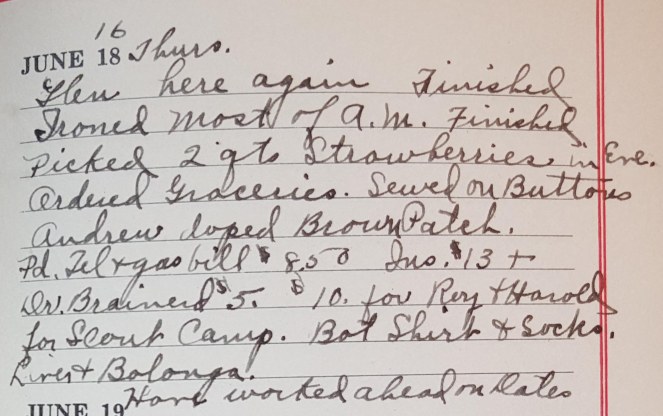 16
JUNE 18 Thurs.
Glen here again Finished
Ironed most of A.M. Finished
Picked 2 qts Strawberries in Eve.
Ordered Graceries. Sewed on Buttons
Andrew doped Brown Patch.
Pd. Tel + gas bill $8.50 Ins. $13 +
Dr. Brainerd $5. $10. for Roy + Harold
for Scout Camp. Bot Shirt & Socks.
Liver + Bolonga.
JUNE 19 Have worked ahead on Dates